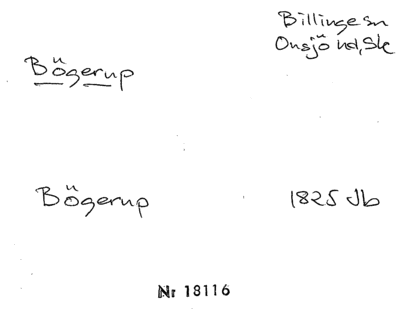 Billinge sn
Onsjö hd, Sk
Bögerup
Bögerup 1825 Jb
Nr 18116